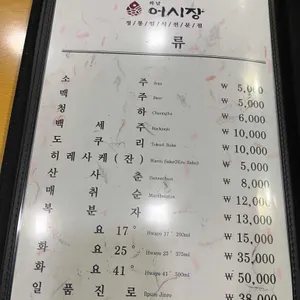 어시장
정통일식전문점
류
소 주 ₩ 5,000
맥 주 Beer ₩ 5,000
청 하 Chungha ₩ 6,000
백 세 주 ₩ 10,000
도 쿠 리 Tokuri Sake ₩ 10,000
히 레 사 케 (잔) ₩ 5,000
산 사 춘 ₩ 8,000
매 취 순 ₩ 12,000
복 분 자 ₩ 13,000
화 요 17° Hwayo 17° 200ml ₩ 15,000
화 요 25° Hwayo 25° 375ml ₩ 35,000
화 요 41° Hwayo 41° ₩ 50,000
일 품 진 로 ₩ 38,000